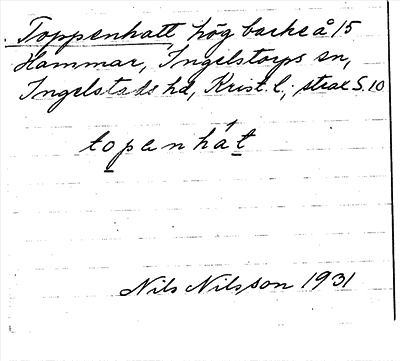 Toppenhatt hög backe å 15
Hammar, Ingelstorps sn,
Ingelstads hd, Krist. l.; strax S. 10
topenhát
Nils Nilsson 1931